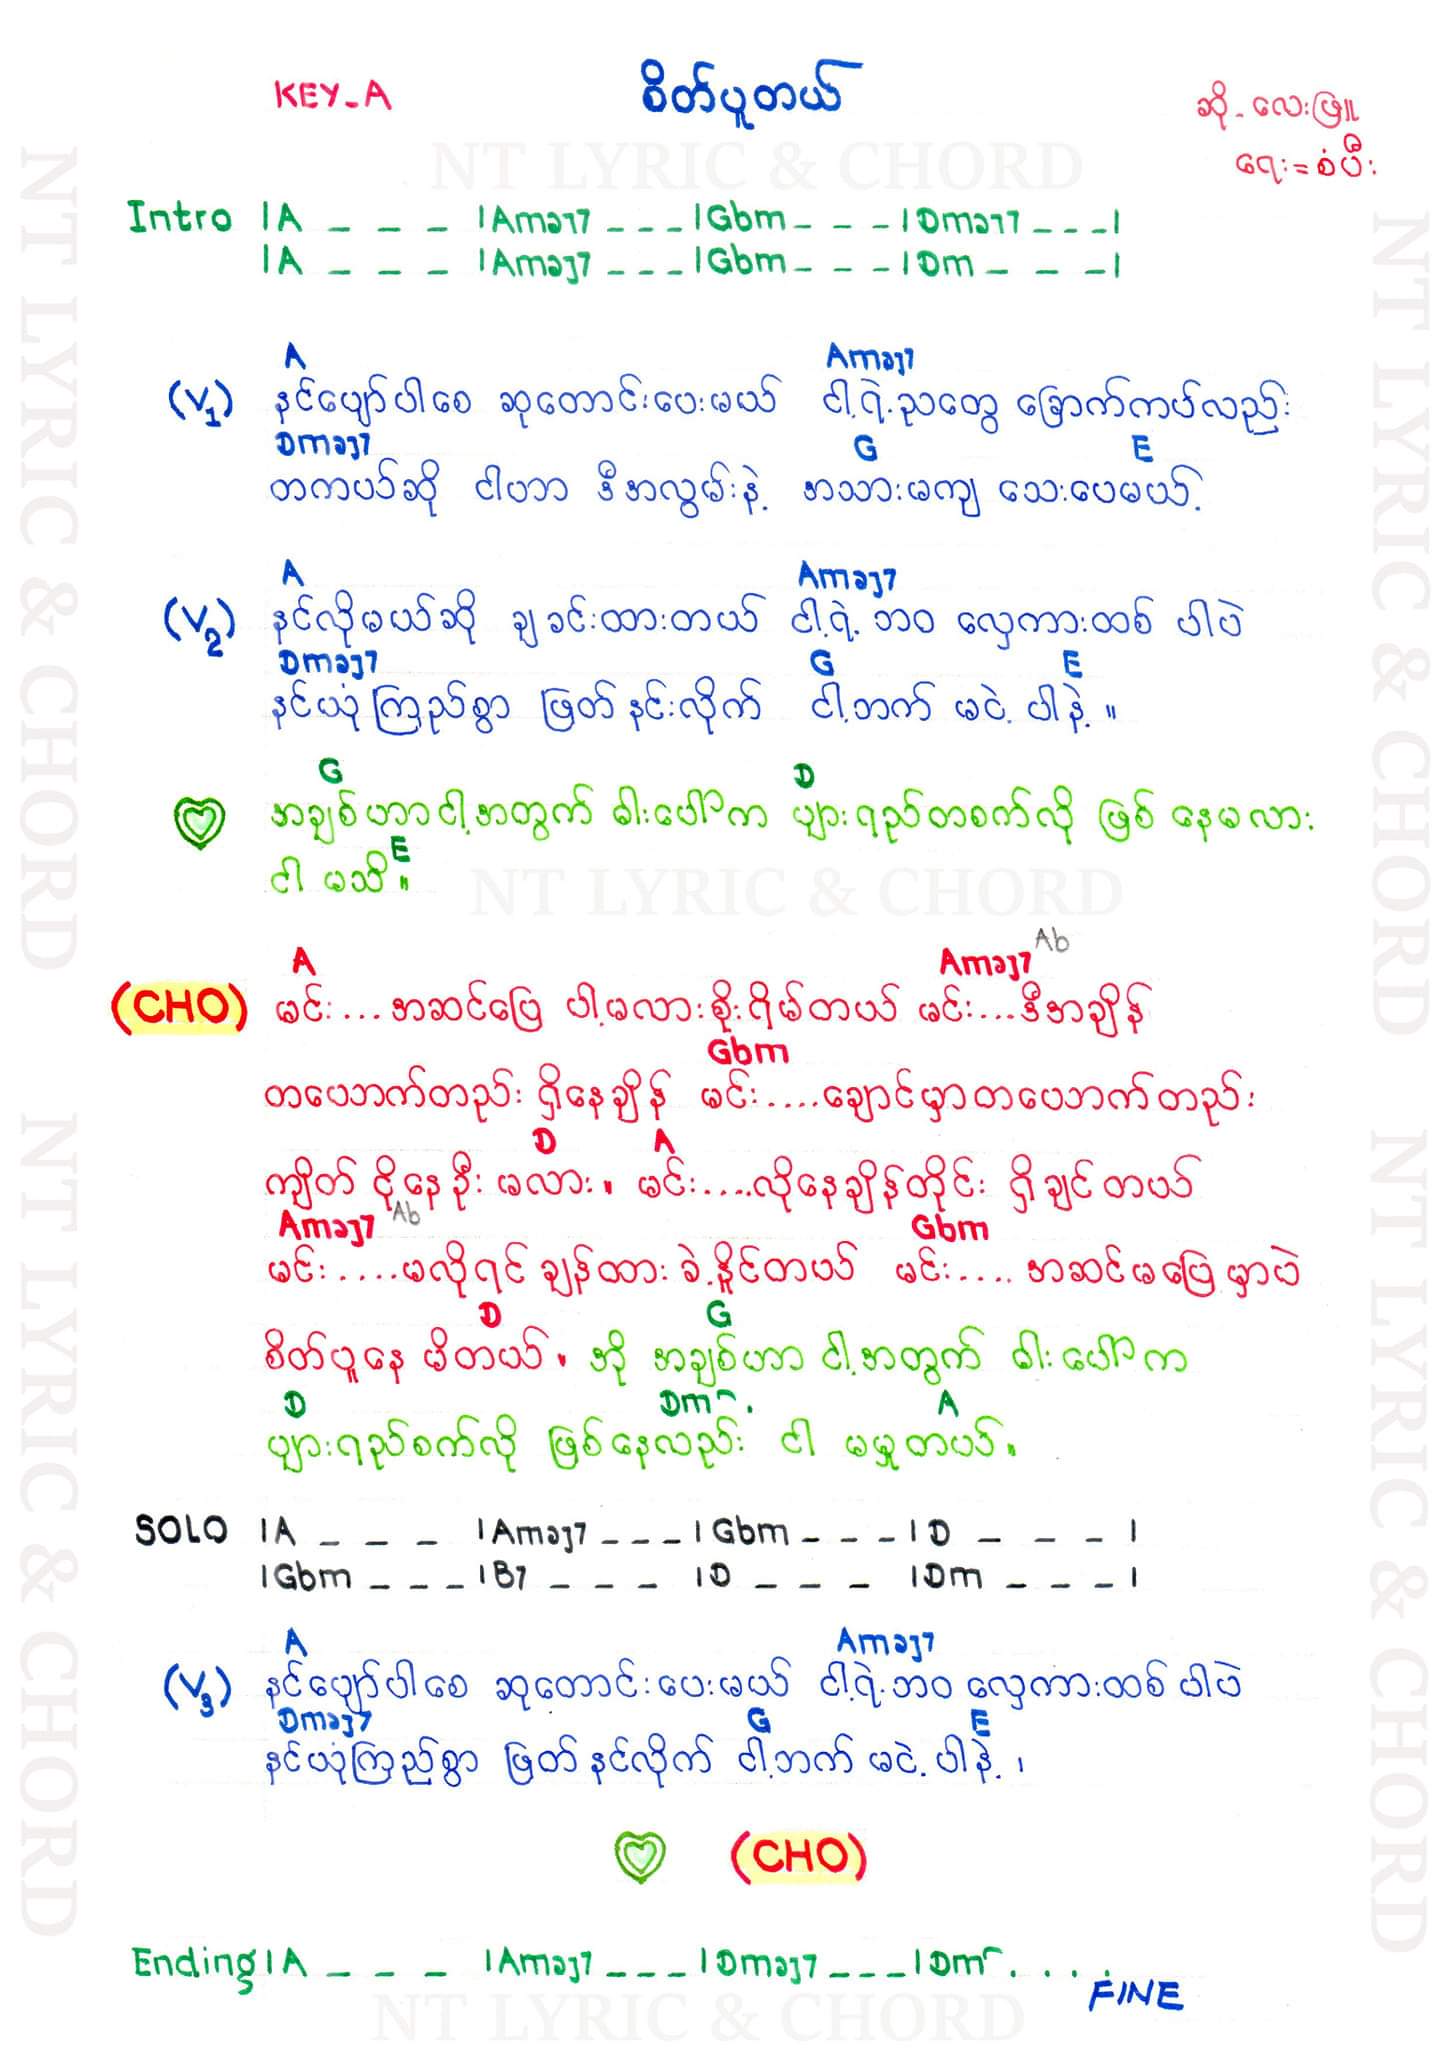 KEY-A စိတ်ပူတယ် ဆို - လေးဖြူ
ရေး = စံပီး
NT LYRIC & CHORD
Intro |A _ _ _ |Amaj7 _ _ _ |Gbm _ _ _ |Dmaj7 _ _ _ |
|A _ _ _ |Amaj7 _ _ _ |Gbm _ _ _ |Dm _ _ _ |
A Amaj7
(V1) နင်ပျော်ပါစေ ဆုတောင်းပေးမယ် ငါ့ရဲ့ညတွေ ခြောက်ကပ်လည်း
Dmaj7 G E
တကယ်ဆို ငါဟာ ဒီအလွမ်းနဲ့ အသားမကျ သေးပေမယ့်
A Amaj7
(V2) နင်လိုမယ်ဆို ချခင်းထားတယ် ငါ့ရဲ့ ဘဝ လှေကားထစ် ပါပဲ
Dmaj7 G E
နင်ယုံကြည်စွာ ဖြတ်နင်းလိုက် ငါ့ဘက် မငဲ့ ပါနဲ့ ။
G D
အချစ်ဟာငါ့အတွက် ဓါးပေါ်က ပျားရည်တစက်လို ဖြစ်နေမလား
E
ငါ မသိ ။
NT LYRIC & CHORD
A Amaj7 Ab
(CHO) မင်း... အဆင်ပြေ ပါ့မလားစိုးရိမ်တယ် မင်း...ဒီအချိန်
Gbm
တယောက်တည်း ရှိနေချိန် မင်း....ချောင်မှာတယောက်တည်း
D A
ကျိတ် ငိုနေဦး မလား။ မင်း....လိုနေချိန်တိုင်း ရှိချင်တယ်
Amaj7 Ab Gbm
မင်း....မလိုရင် ချန်ထားခဲ့နိုင်တယ် မင်း.... အဆင်မပြေမှာပဲ
D G
စိတ်ပူနေ မိတယ်။ အို အချစ်ဟာ ငါ့အတွက် ဓါးပေါ်က
D Dm . A
ပျားရည်စက်လို ဖြစ်နေလည်း ငါ မမှုတယ်။
SOLO |A _ _ _ |Amaj7 _ _ _ |Gbm _ _ _ |D _ _ _ |
|Gbm _ _ _ |B7 _ _ _ |D _ _ _ |Dm _ _ _ |
A Amaj7
(V3) နင်ပျော်ပါစေ ဆုတောင်းပေးမယ် ငါ့ရဲ့ဘဝ လှေကားထစ်ပါပဲ
Dmaj7 G E
နင်ယုံကြည်စွာ ဖြတ်နင်လိုက် ငါ့ဘက် မငဲ့ပါနဲ့ ၊
(CHO)
Ending |A _ _ _ |Amaj7 _ _ _ |Dmaj7 _ _ _ |Dm . . . .
FINE
NT LYRIC & CHORD
NT LYRIC & CHORD
NT LYRIC & CHORD
NT LYRIC & CHORD
NT LYRIC & CHORD